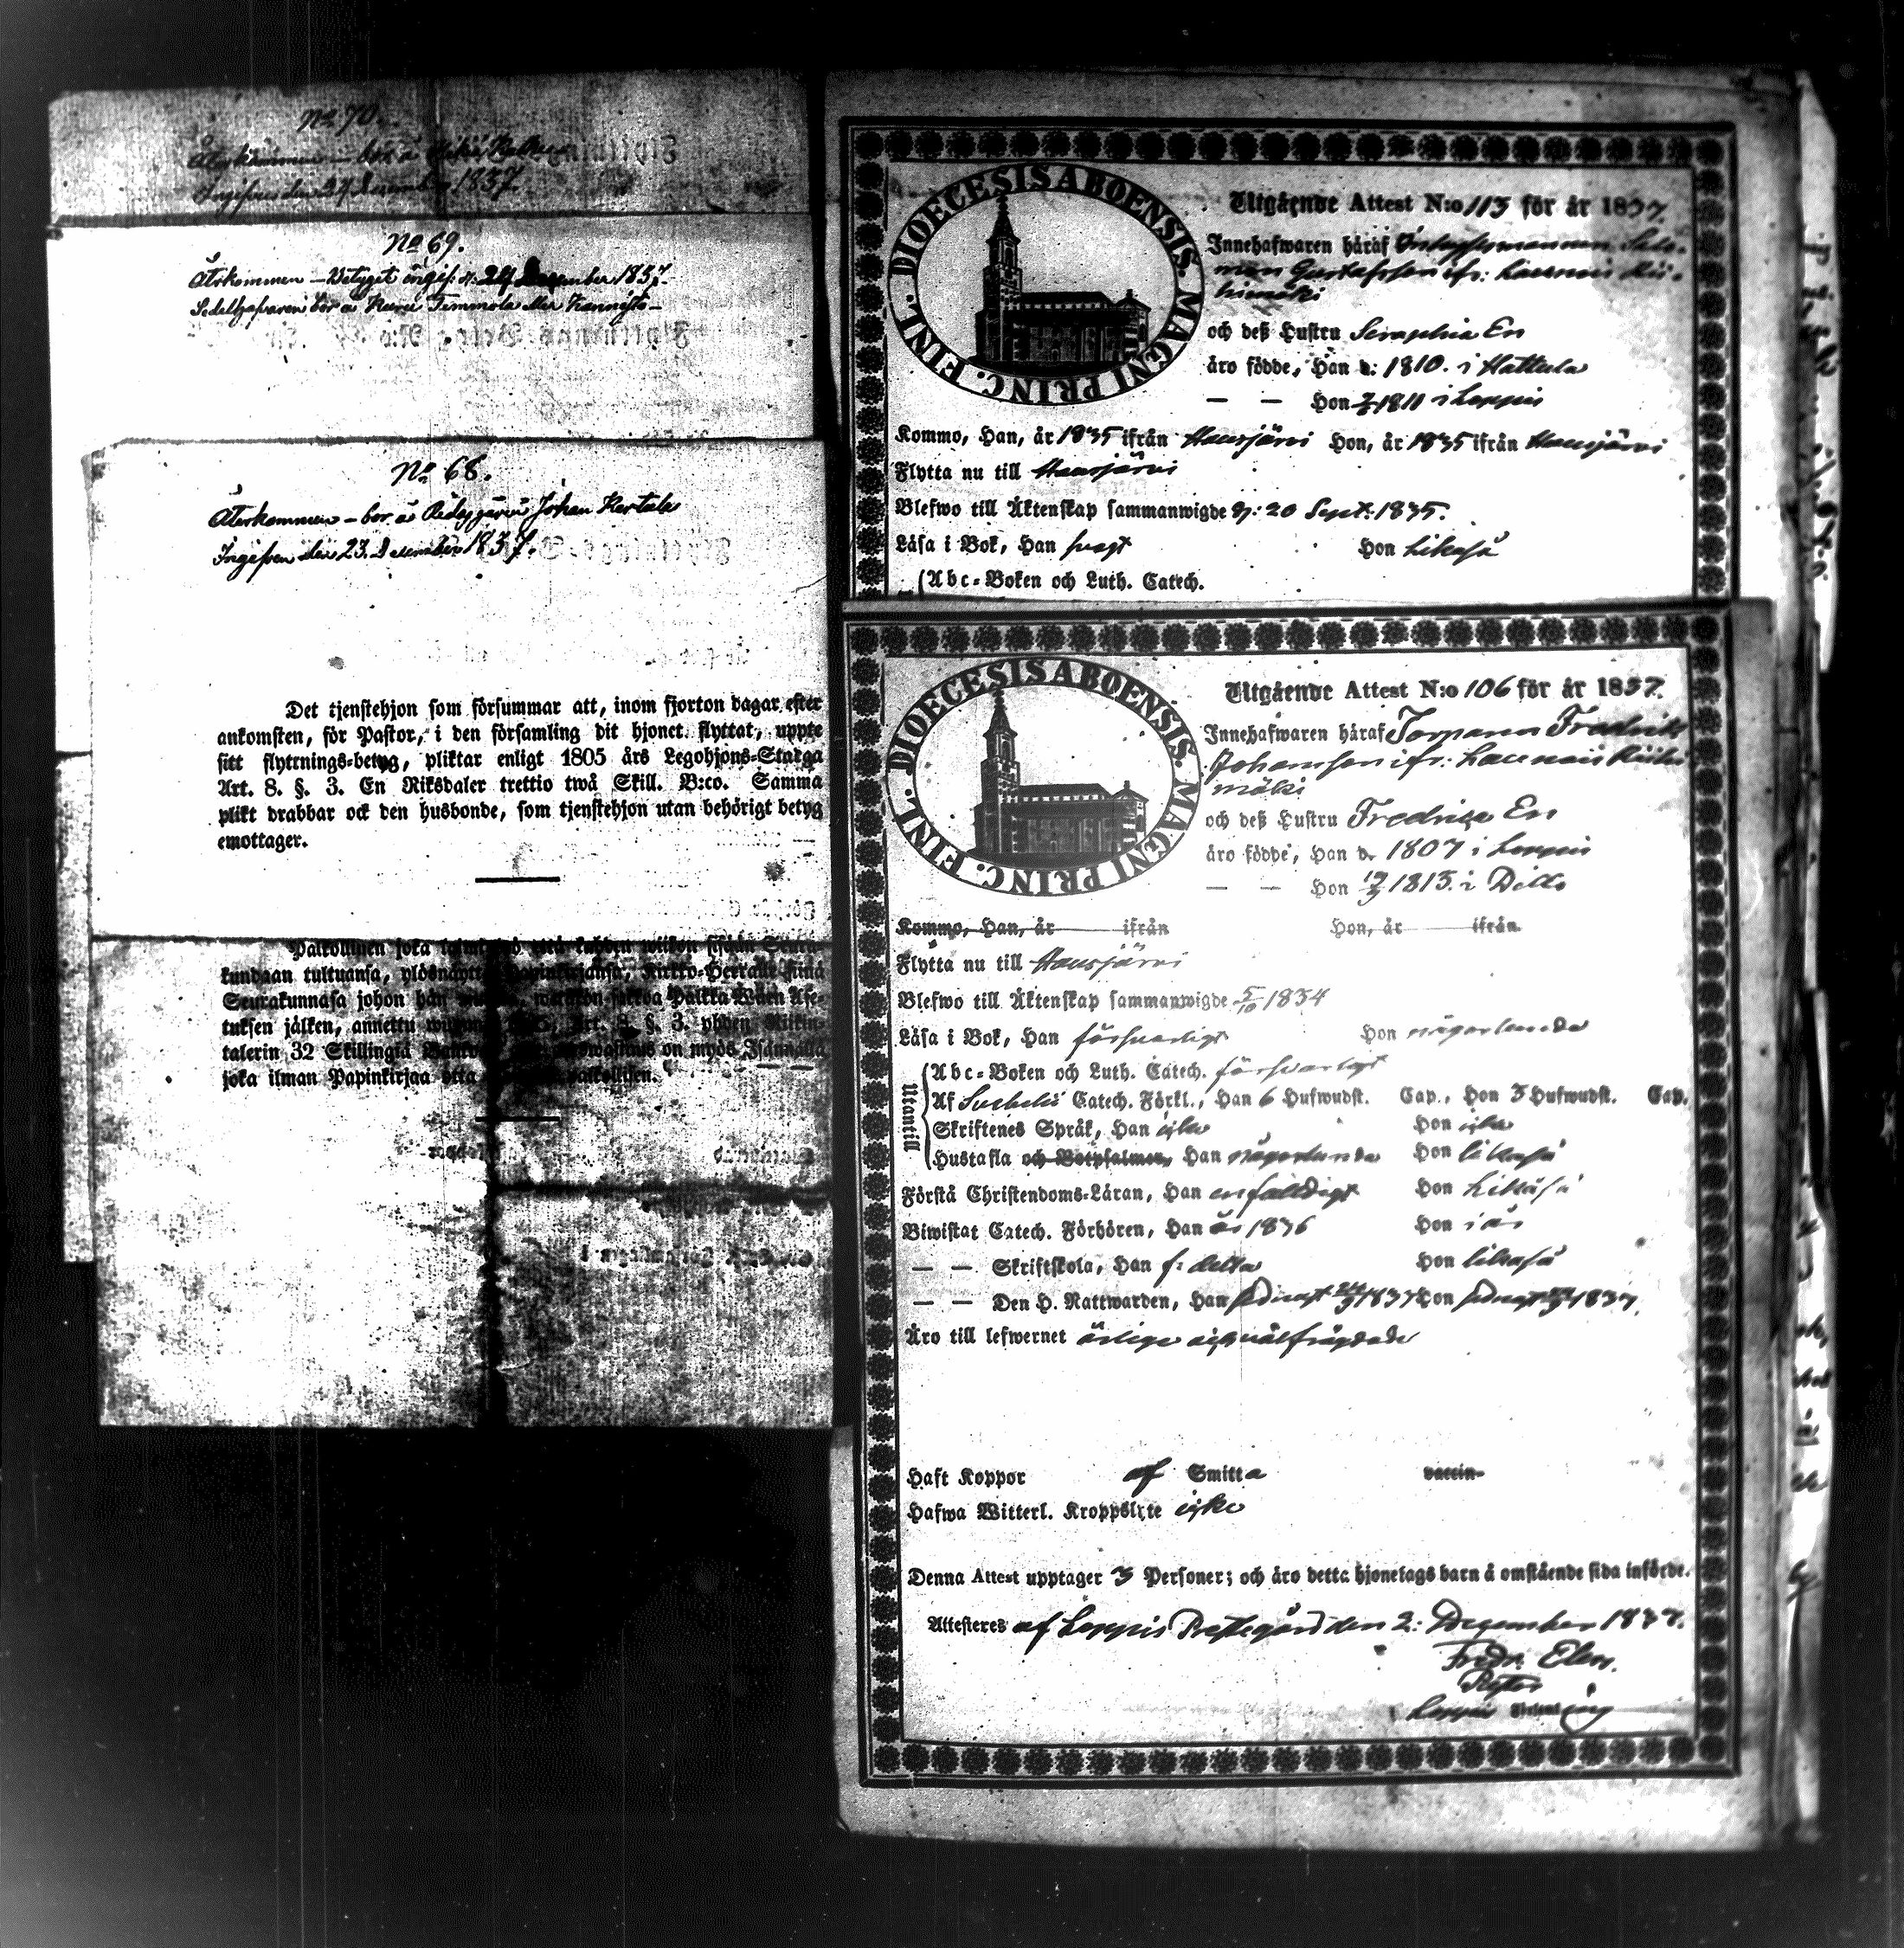 No 70.
Återkommen – bor å
Ingifven den 27 December 1837.
No 69.
Återkommen – Betyget ingif. d. 24 December 1837.
Sedelhafvaren bor å
No 68.
Återkommen – bor å Johan
Ingifven den 23. December 1837.
Det tjenstehjon som försummar att, inom fjorton dagar efter
ankomsten, för Pastor, i den församling dit hjonet flyttat, uppte
sitt flyttnings-betyg, pliktar enligt 1805 års Legohjons-Stadga
Art. 8. §. 3. En Riksdaler trettio twå Skill. B:co. Samma
plikt drabbar ock den husbonde, som tjenstehjon utan behörigt betyg
emottager.
Palkollinen joka kahden wiikon sisään Seura-
kundaan tultuansa, ylösnäytt Papinkirjansa, Kirkko-Herralle siinä
Seurakunnasa johon hän Palkka Wäen Ase-
tuksen jälken, annettu Art. 8. §. 3. yhden Rikin-
talerin 32 Skillingiä on myös Isännällä
joka ilman Papinkirjaa otta palkollisen.
DIOECESIS ABOENSIS. MAGNI PRINC. FINL.
Utgående Attest N:o 113 för år 1837.
Innehafwaren häraf Salo-
mon Gustafsson ifr: Launois Rii-
himäki
och deß Hustru Seraphia En
äro födde, Han d: 1810. i Hattula
— — Hon 1811 i Loppis
Kommo, Han, år 1835 ifrån Hausjärvi Hon, år 1835 ifrån Hausjärvi
Flytta nu till Hausjärvi
Blefwo till Äktenskap sammanwigde d: 20 Sept. 1835.
Läsa i Bok, Han svagt Hon likaså
Abc-Boken och Luth. Catech.
DIOECESIS ABOENSIS. MAGNI PRINC. FINL.
Utgående Attest N:o 106 för år 1837.
Innehafwaren häraf Torparen Fredrik
Johansson ifr: Launois Riihi
mäki
och deß Hustru Fredrica En
äro födde, Han d. 1807 i Loppis
— — Hon 1813. i Ditto
Kommo, Han, år ifrån Hon, år ifrån
Flytta nu till Hausjärvi
Blefwo till Äktenskap sammanwigde 5/10 1834
Läsa i Bok, Han försvarligt Hon någorlunda
Utantill
Abc-Boken och Luth. Catech. försvarligt
Af Svebelii Catech. Förkl., Han 6 Hufwudst. Cap., Hon 3 Hufwudst. Cap.
Skriftenes Språk, Han icke Hon icke
Hustafla och Botpsalmer, Han någorlunda Hon likaså
Förstå Christendoms-Läran, Han enfaldigt Hon likaså
Biwistat Catech. Förhören, Han år 1836 Hon i år
— — Skriftskola, Han f: detta Hon likaså
— — Den H. Nattwarden, Han sednast 1837 Hon sednast 1837.
Äro till lefwernet ärlige och välfrägdade
Haft Koppor af Smitta vaccin
Hafwa Witterl. Kroppslyte icke
Denna Attest upptager 3 Personer; och äro detta hjonelags barn å omstående sida införde.
Attesteras af Loppis Prestegård den 2: December 1837.
Fredr. Elers.
Pastor
Loppis